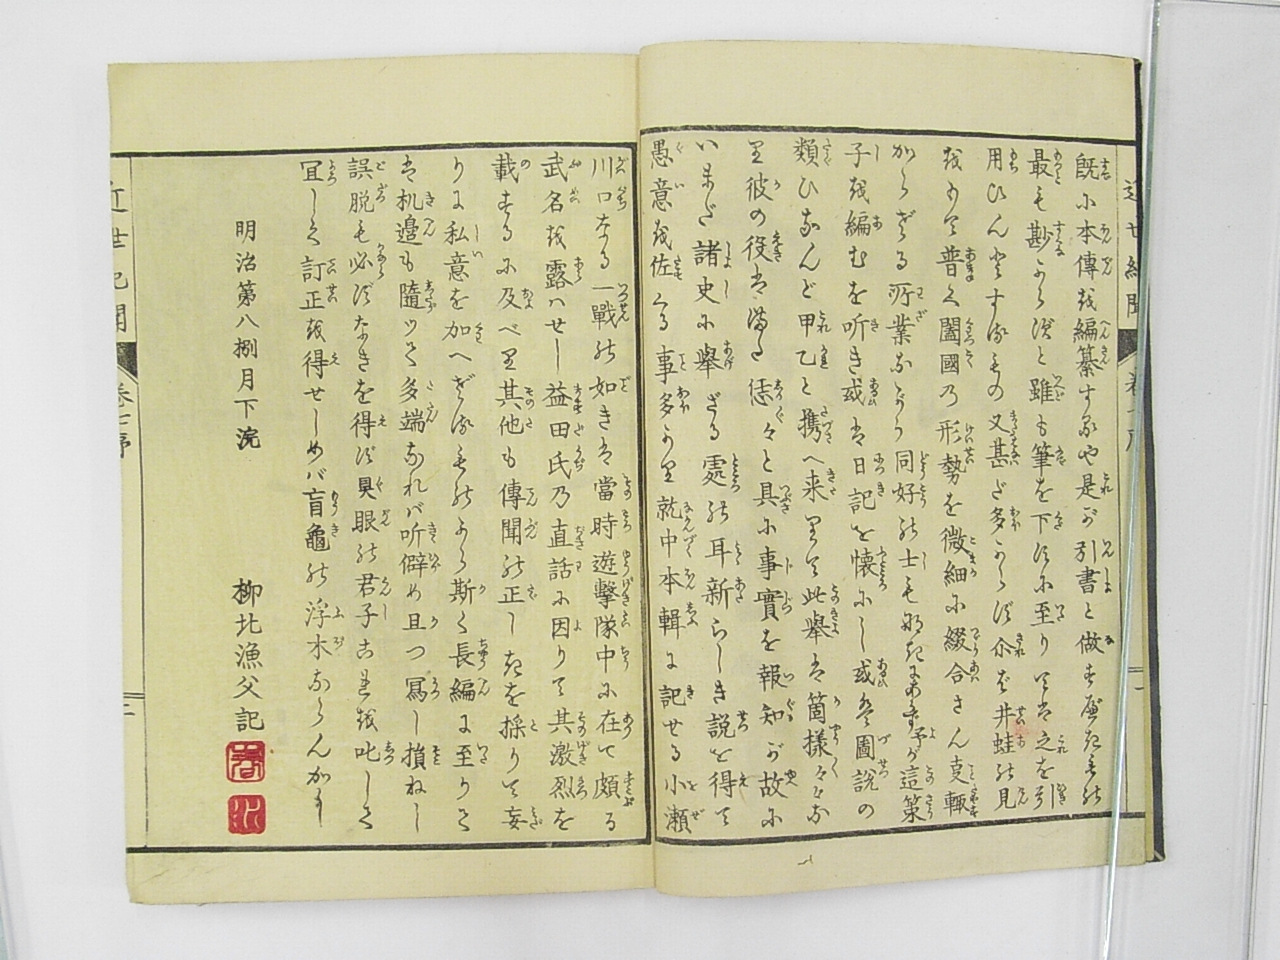 既に本傳を編纂するや是が引書と做すべきもの
最も尠からずと雖も筆を下すに至りては之を引
用ひんとするもの又甚だ多からず尒ば井蛙の見
をもて普く闔國の形勢を微細に綴合さん
からざる所業なかり同好の士も
子を編むを听き或は日記を懐にし或は圖説の
類ひなんど甲乙と携へ来りて此擧は箇様々々な
り彼の役は恁々と具に事實を報知が故に
いまだ諸史に擧ざる處の耳新らしき説を得て
愚意を佐くる事多かり就中本輯に記せる小瀬
川口なる一戰の如きは當時遊擊隊中に在て頗る
武名を露はせし益田氏乃直話に因りて其激烈を
載するに及べり其他も傳聞の正しきを採りて妄
りに私意を加へざるものから斯く長編に至りて
は机邊も隨つて多端なれば听僻め且つ冩し損ねし
誤脱も必ずなきを得ず具眼の君子これを叱して
冝しく訂正を得せしめば盲龜の浮木ならんかし
明治第八捌月下浣
柳北漁父記
近世紀聞